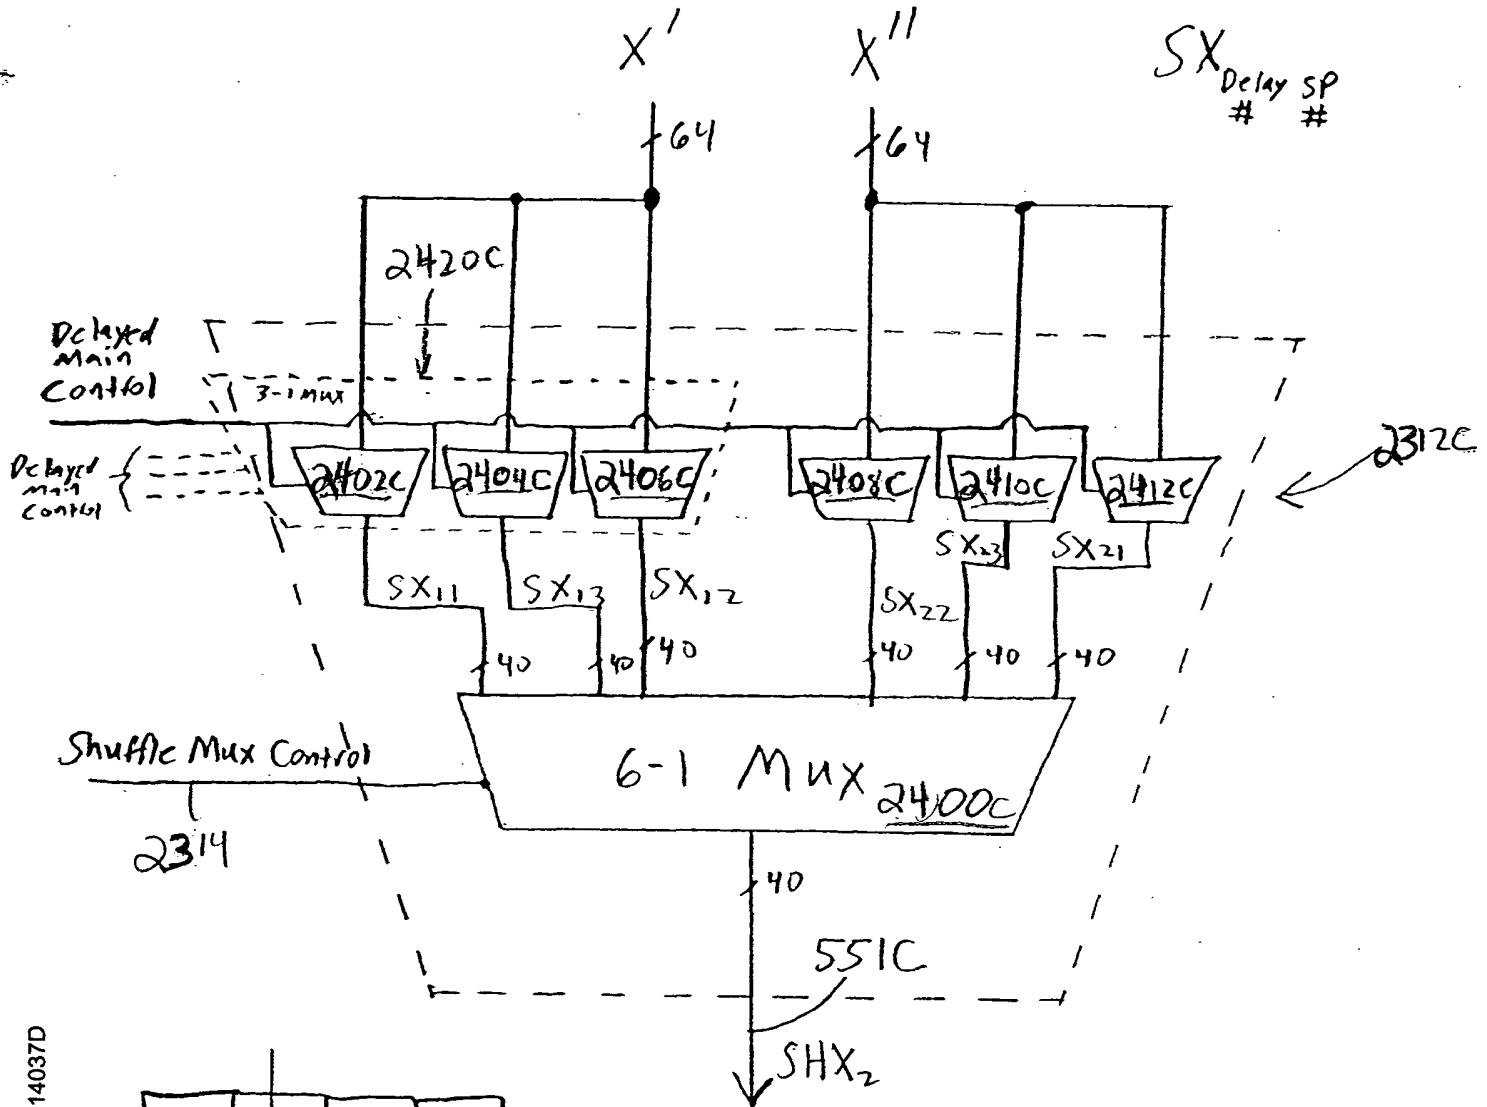 X' X'' SX Delay SP
# #
64 64
2420C
Delayed
Main
Control
3-1 Mux
2312C
Delayed
Main
Control
2402C 2404C 2406C 2408C 2410C 2412C
SX23 SX21
SX11 SX13 SX12 SX22
40 40 40 40 40 40
Shuffle Mux Control
6-1 Mux 2400C
2314
40
551C
SHX2
14037D